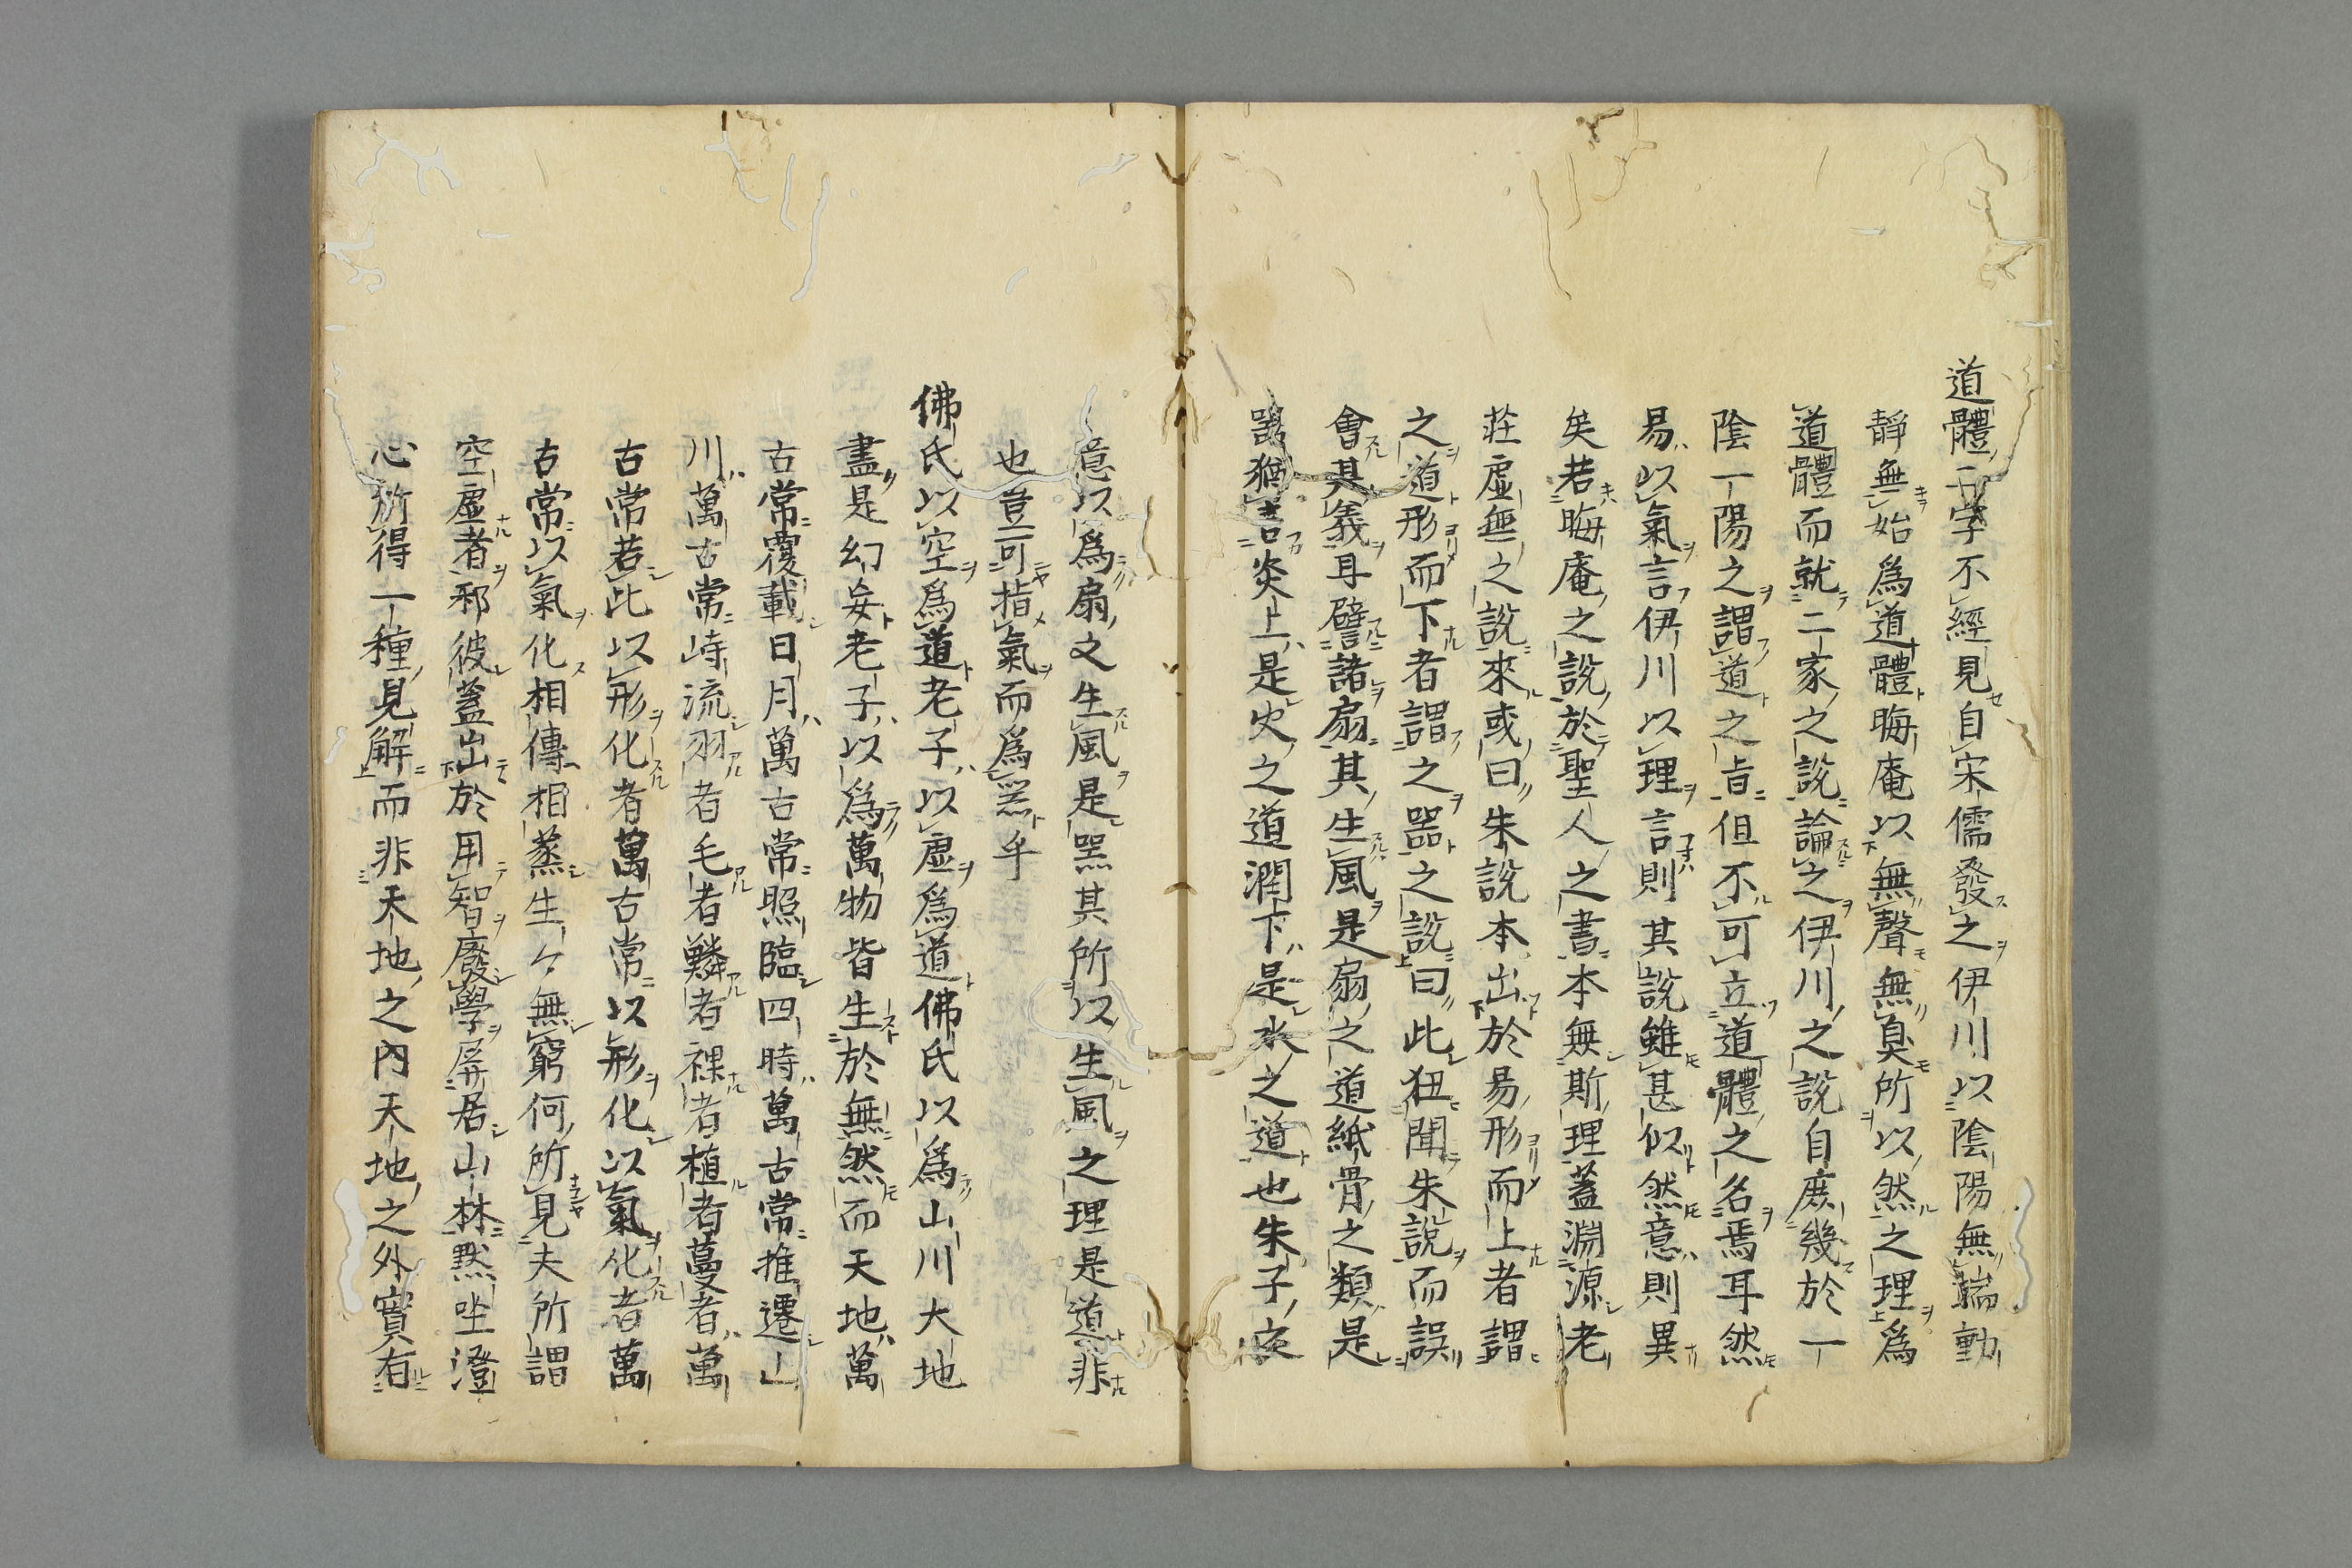 道體二字不經見自宋儒發之伊川以陰陽無端動
靜無始爲道體晦庵以無聲無臭所以然之理爲
道體而就二家之說論之伊川之說自庶幾於一
陰一陽之謂道之旨但不可立道體之名焉耳然
易以氣言伊川以理言則其說雖甚似然意則異
矣若晦庵之說於聖人之書本無斯理蓋淵源老
莊虛無之說來或曰朱說本出於易形而上者謂
之道形而下者謂之器之說曰此狃聞朱說而誤
會其義耳譬諸扇其生風是扇之道紙骨之類是
器猶言炎上是火之道潤下是水之道也朱子
意以爲扇之生風是器其所以生風之理是道非
也豈可指氣而爲器乎
佛氏以空爲道老子以虛爲道佛氏以爲山川大地
盡是幻妄老子以爲萬物皆生於無然而天地萬
古常覆載日月萬古常照臨四時萬古常推遷山
川萬古常峙流羽者毛者鱗者裸者植者蔓者萬
古常若此以形化者萬古常以形化以氣化者萬
古常以氣化相傳相蒸生々無窮何所見夫所謂
空虛者邪彼蓋出於用智廢學屏居山林默坐澄
心所得一種見解而非天地之內天地之外實有